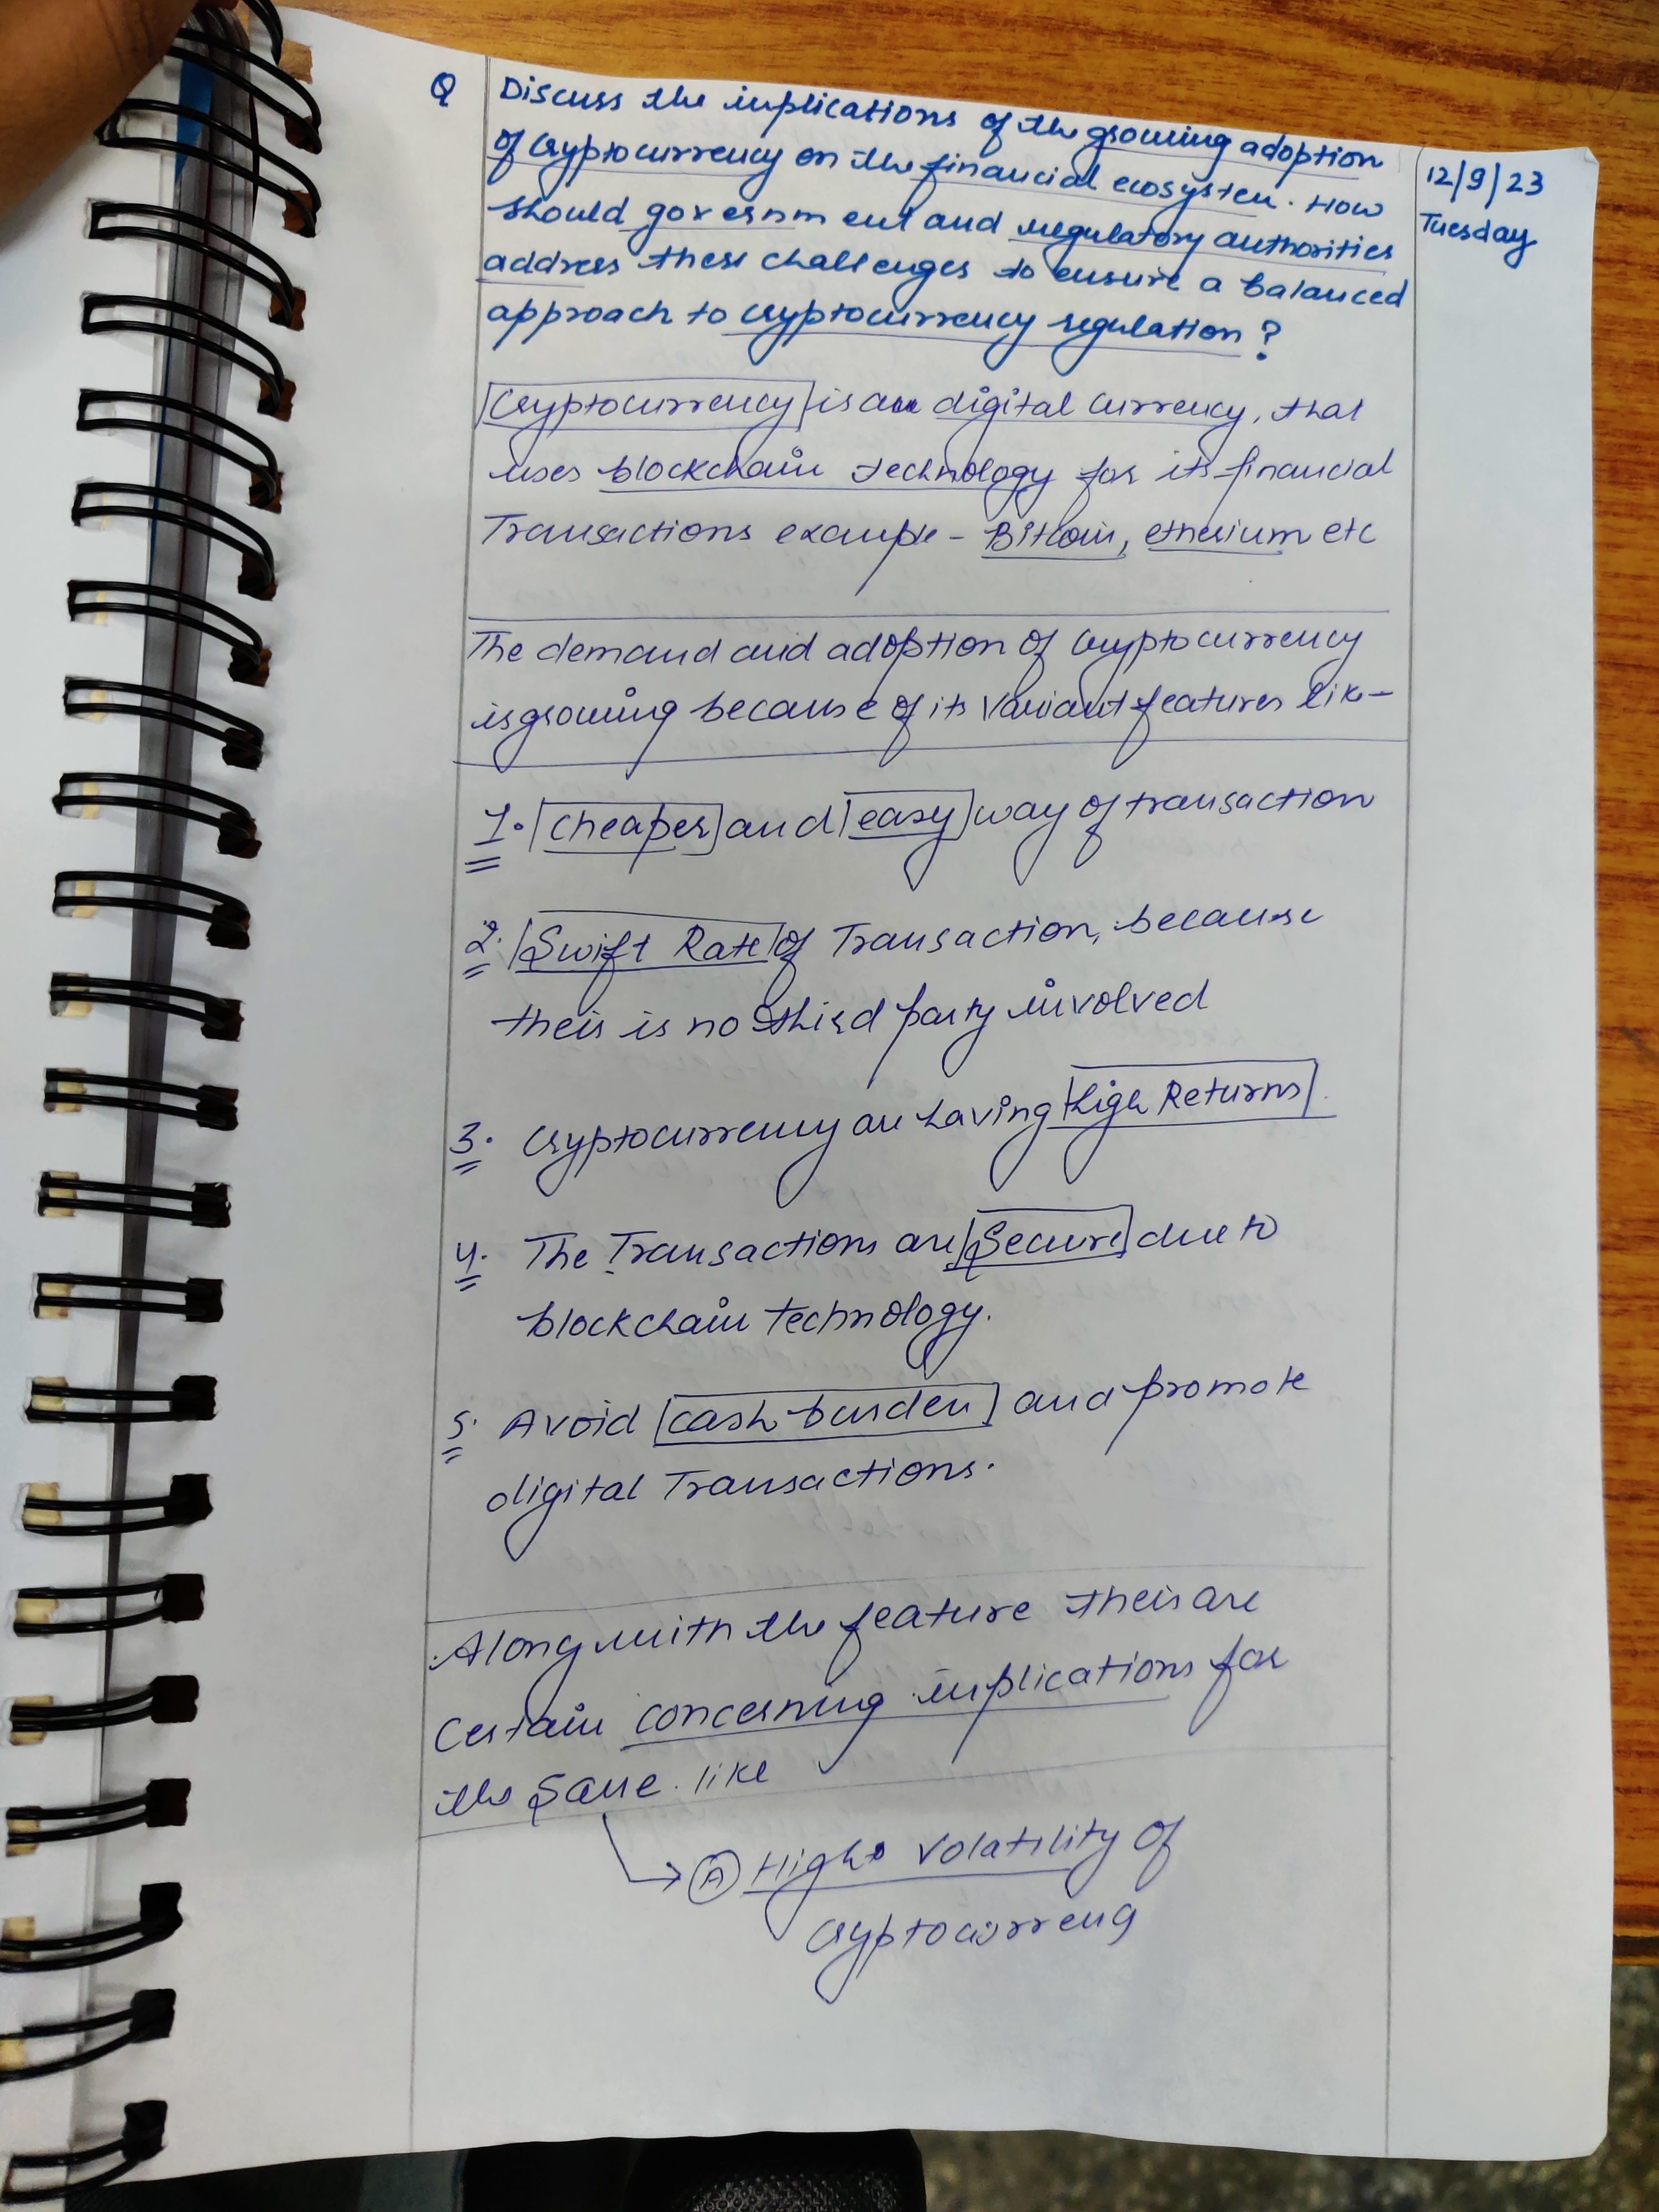 Q Discuss the implications of the growing adoption
of Cryptocurrency on the financial ecosystem. How
should government and regulatory authorities
address these challenges to ensure a balanced
approach to cryptocurrency regulation?
12/9/23
Tuesday
Cryptocurrency is an digital currency, that
uses blockchain technology for its financial
Transactions example - Bitcoin, etherium etc
The demand and adoption of Cryptocurrency
is growing because of its Variant features like -
1. Cheaper and easy way of transaction
2. Swift Rate of Transaction, because
theis is no third party involved
3. Cryptocurrency are having High Returns.
4. The Transactions are Secure due to
blockchain technology.
5. Avoid cash burden and promote
digital Transactions.
Along with the feature theis are
Certain concerning implications for
the same. like
→ A High volatility of
Cryptocurrency